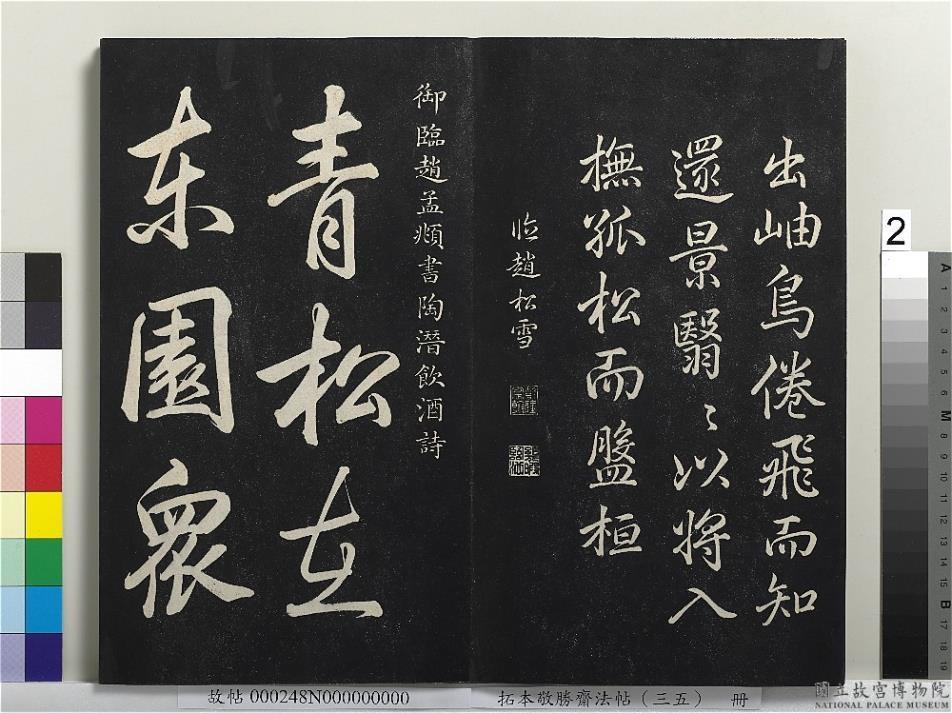 出岫鳥倦飛而知
還景翳〻以将入
撫孤松而盤桓
临趙松雪
御臨趙孟頫書陶潛飲酒詩
青松在
東園眾
2
故帖 000248N000000000
拓本敬勝齋法帖（三五） 冊
國立故宮博物院
NATIONAL PALACE MUSEUM
A 1 2 3 4 5 6 M 8 9 10 11 12 13 14 15 B 17 18 19